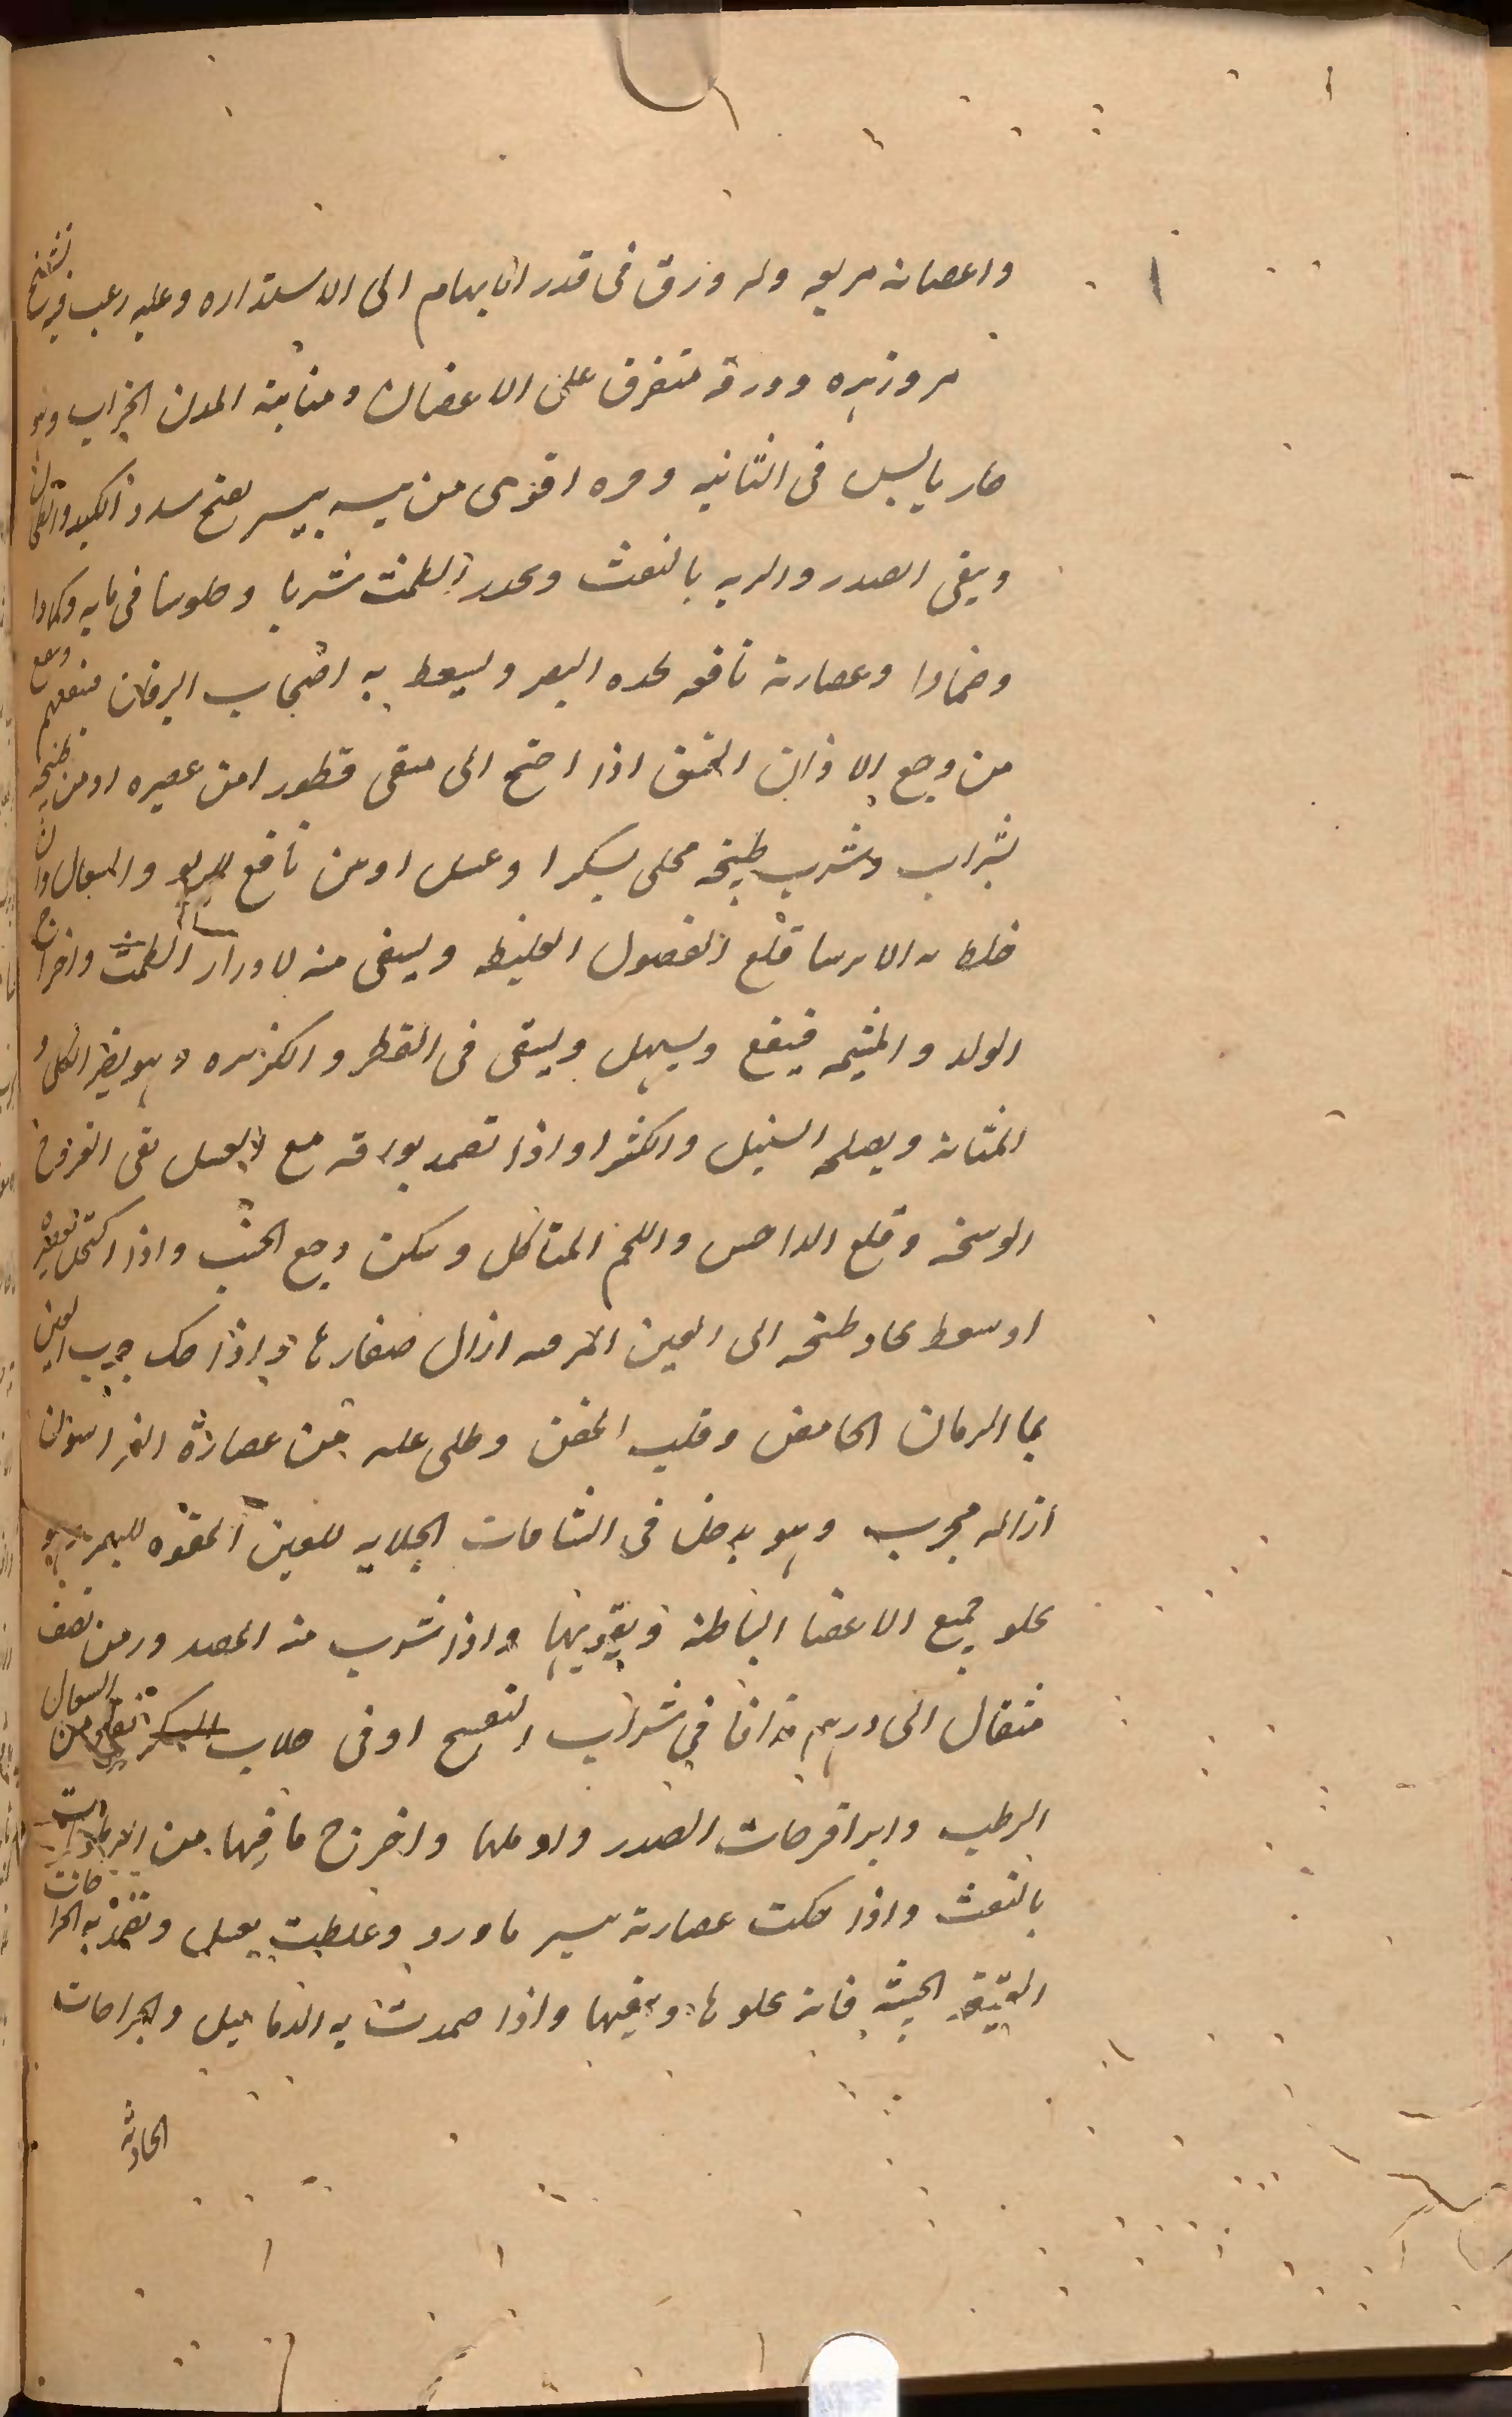 واعصانه مربعه وله ورق فى قدر الابهام الى الاستداره وعليه زغب وفيه تشنج
مر وزهره وورقه متفرق على الاغصان ومنابته المدن الخراب وهو
حار يابس فى الثانيه وحره اقوى من يبسه بيسير يفتح سدد الكبد والطحال
وينقى الصدر والريه بالنفث ويحدر الطمث شربا وجلوسا فى مايه وكمادا
وضمادا وعصارته نافعه لحده البصر ويسعط به اصحاب اليرقان فينفعهم وينفع
من وجع الاذان المخنق اذا احتج الى منقى قطورا من عصيره او من طبيخه
بشراب وشرب طبيخه محلى بسكر او عسل او من نافع للربو والسعال وان
خلط به الايرسا قلع الفضول الغليظه ويسقى منه لادرار الطمث واخراج
الولد والمشيمه فينفع ويسهل ويسقى فى القطر والكزبره وهو يضر الكلى و
المثانه ويصلحه السنبل والكثيرا واذا تضمد بورقه مع العسل نقى القروح
الوسخه وقلع الداحس واللحم المتاكل وسكن وجع الجنب واذا اكتحل بعصيره
او سعط بماء طبخه الى العين المرمده ازال صفارها واذا حك جرب العين
بما الرمان الحامض وقلب الجفن وطلى عليه من عصارة الفراسيون
ازاله مجرب وهو يدخل فى الشيافات الجلايه للعين المقويه للبصر وهو
يجلو جميع الاعضا الباطنه ويقويها واذا شرب منه المصدورمن نصف
مثقال الى درهم مدافا فى شراب البنفسج او فى جلاب السكر نفع من السعال
الرطب وابرا قرحات الصدر واوملها واخرج ما فيها من الرطوبات
بالنفث واذا حكت عصارته بيسير ماورد وخلطت بعسل وتضمد به الجراحات
العتيقه الخبيثه فانه يجلوها وينقيها واذا ضمدت به الدماميل والجراحات
الحادثه